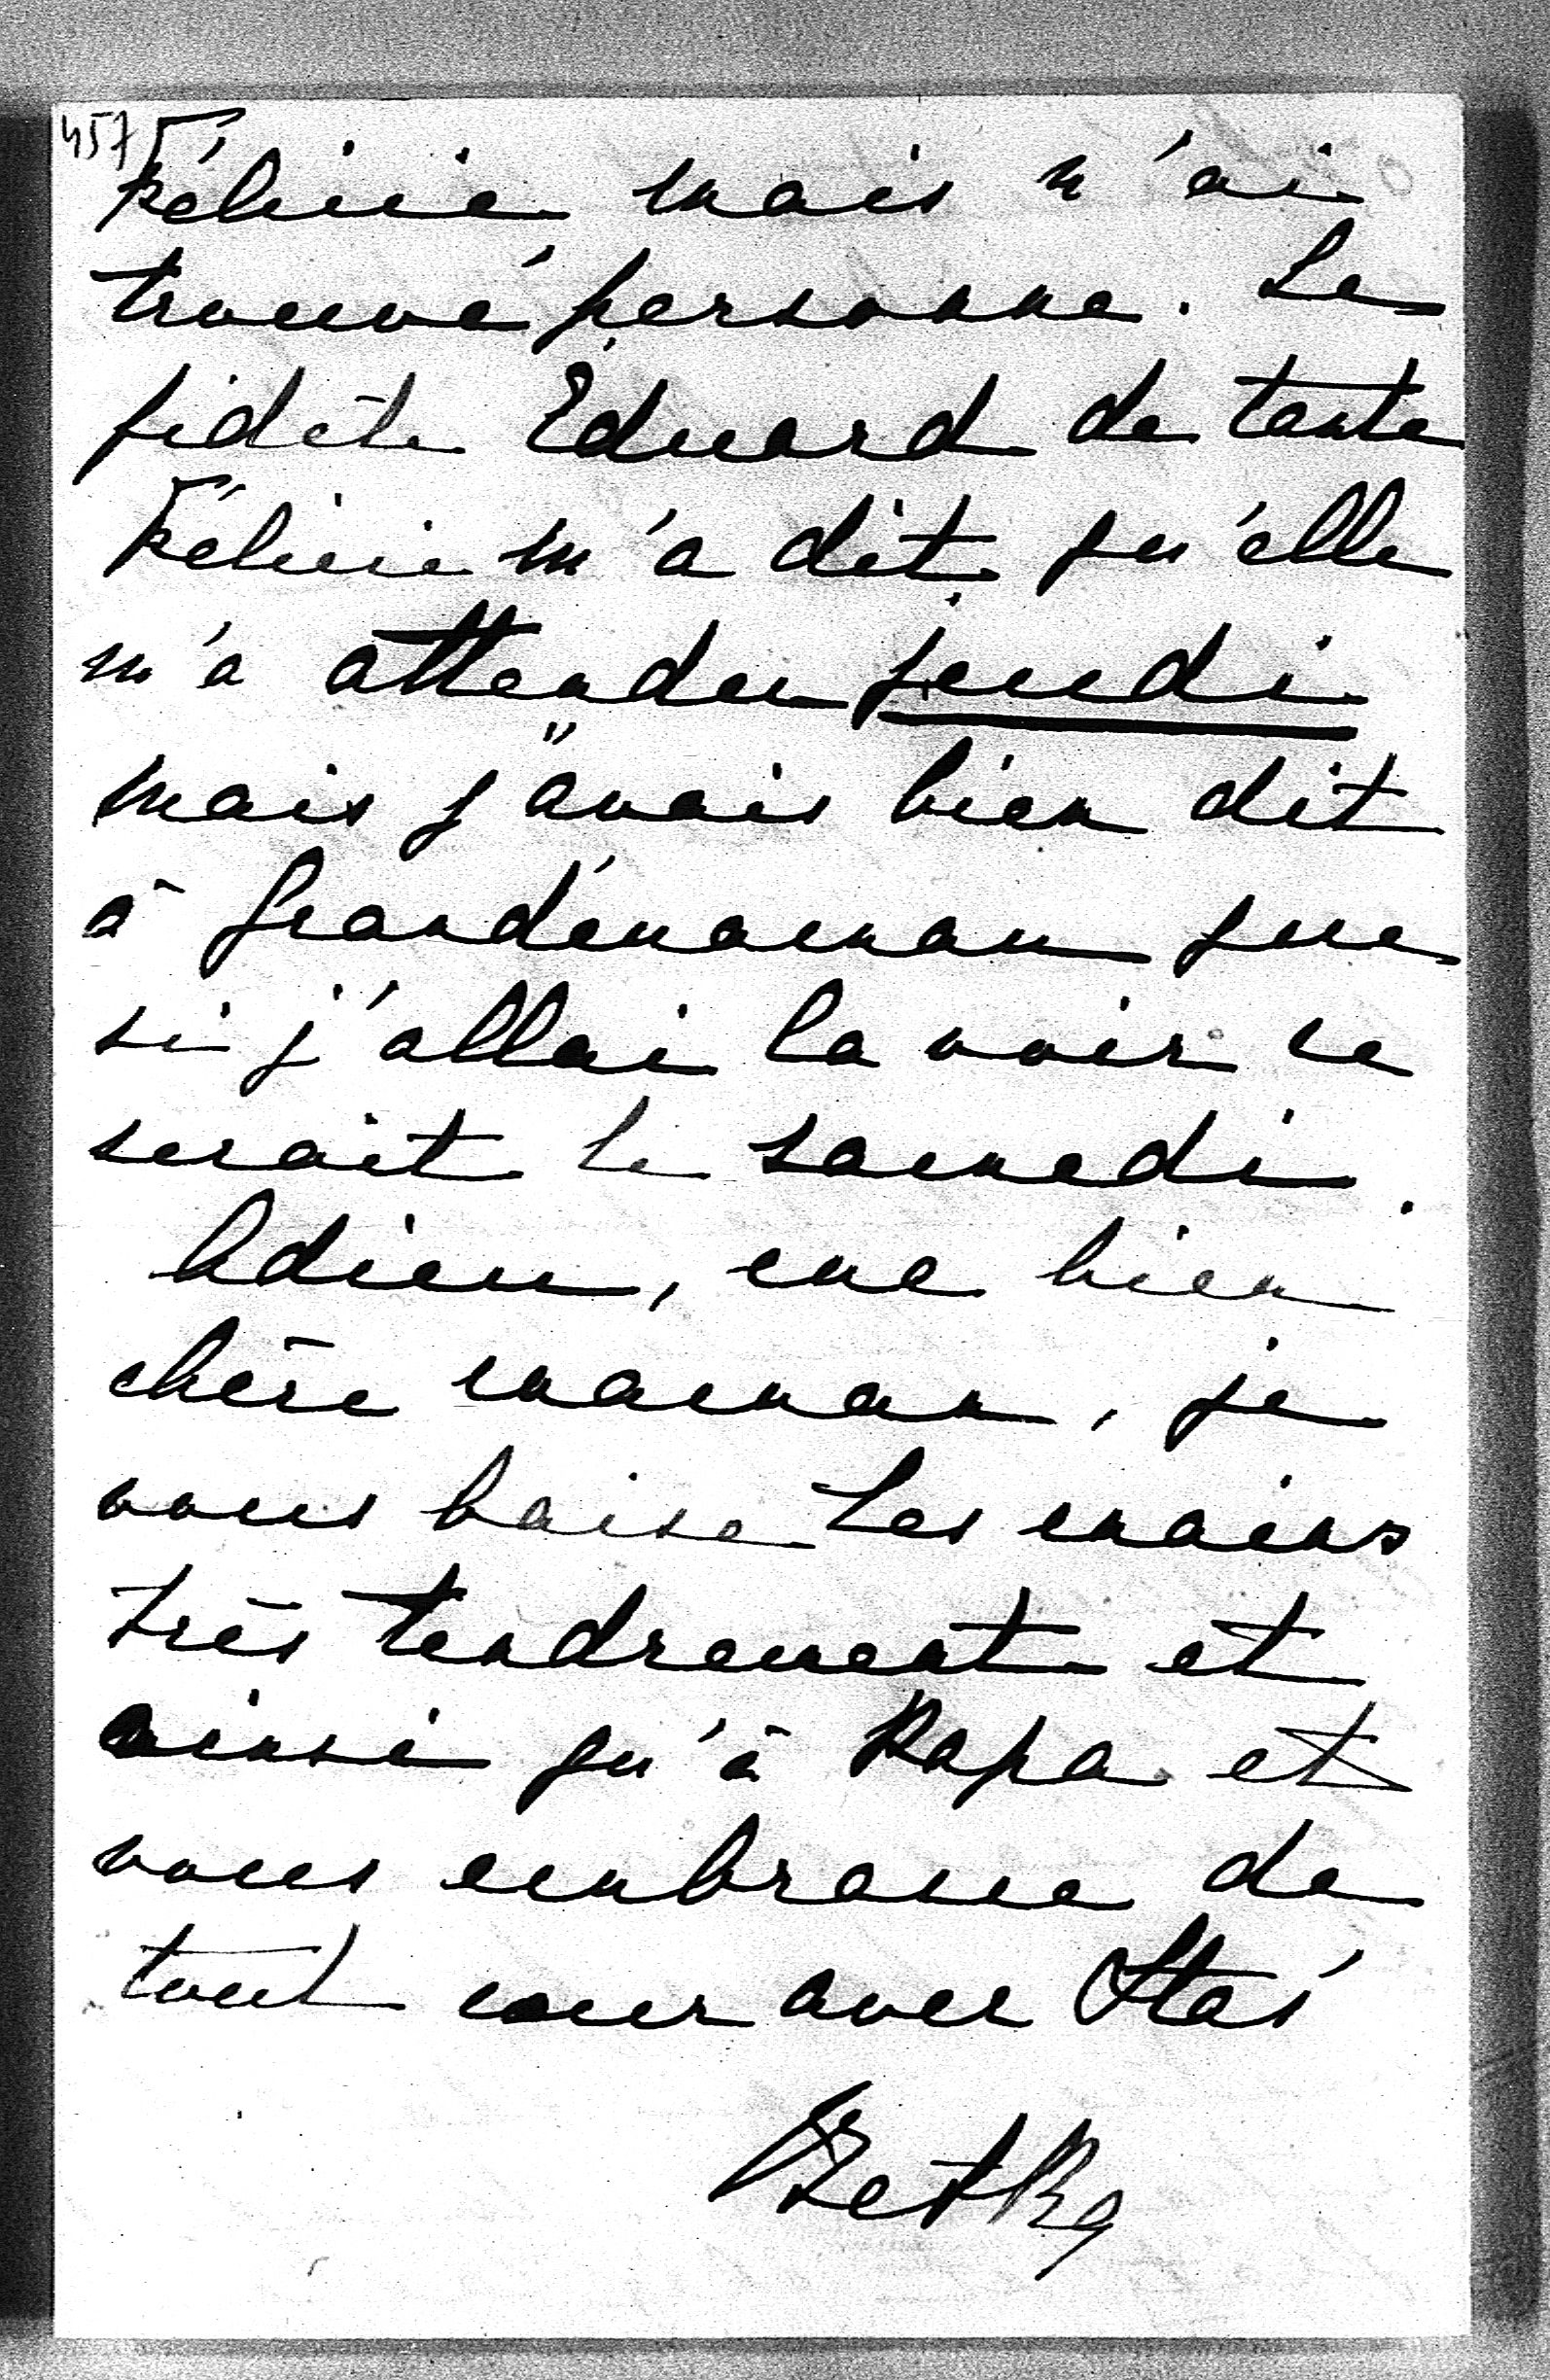 457
Félicie, mais n'ai
trouvé personne. Le
fidèle Éduard de tante
Félicie m'a dit qu'elle
m'a attendu jeudi
mais j'avais bien dit
à Grand'maman que
si j'allai la voir ce
serait le samedi.
Adieu, ma bien
chère maman, je
vous baise les mains
très tendrement et
ainsi qu'à Papa et
vous embrasse de
tout cœur avec Staś
Betka